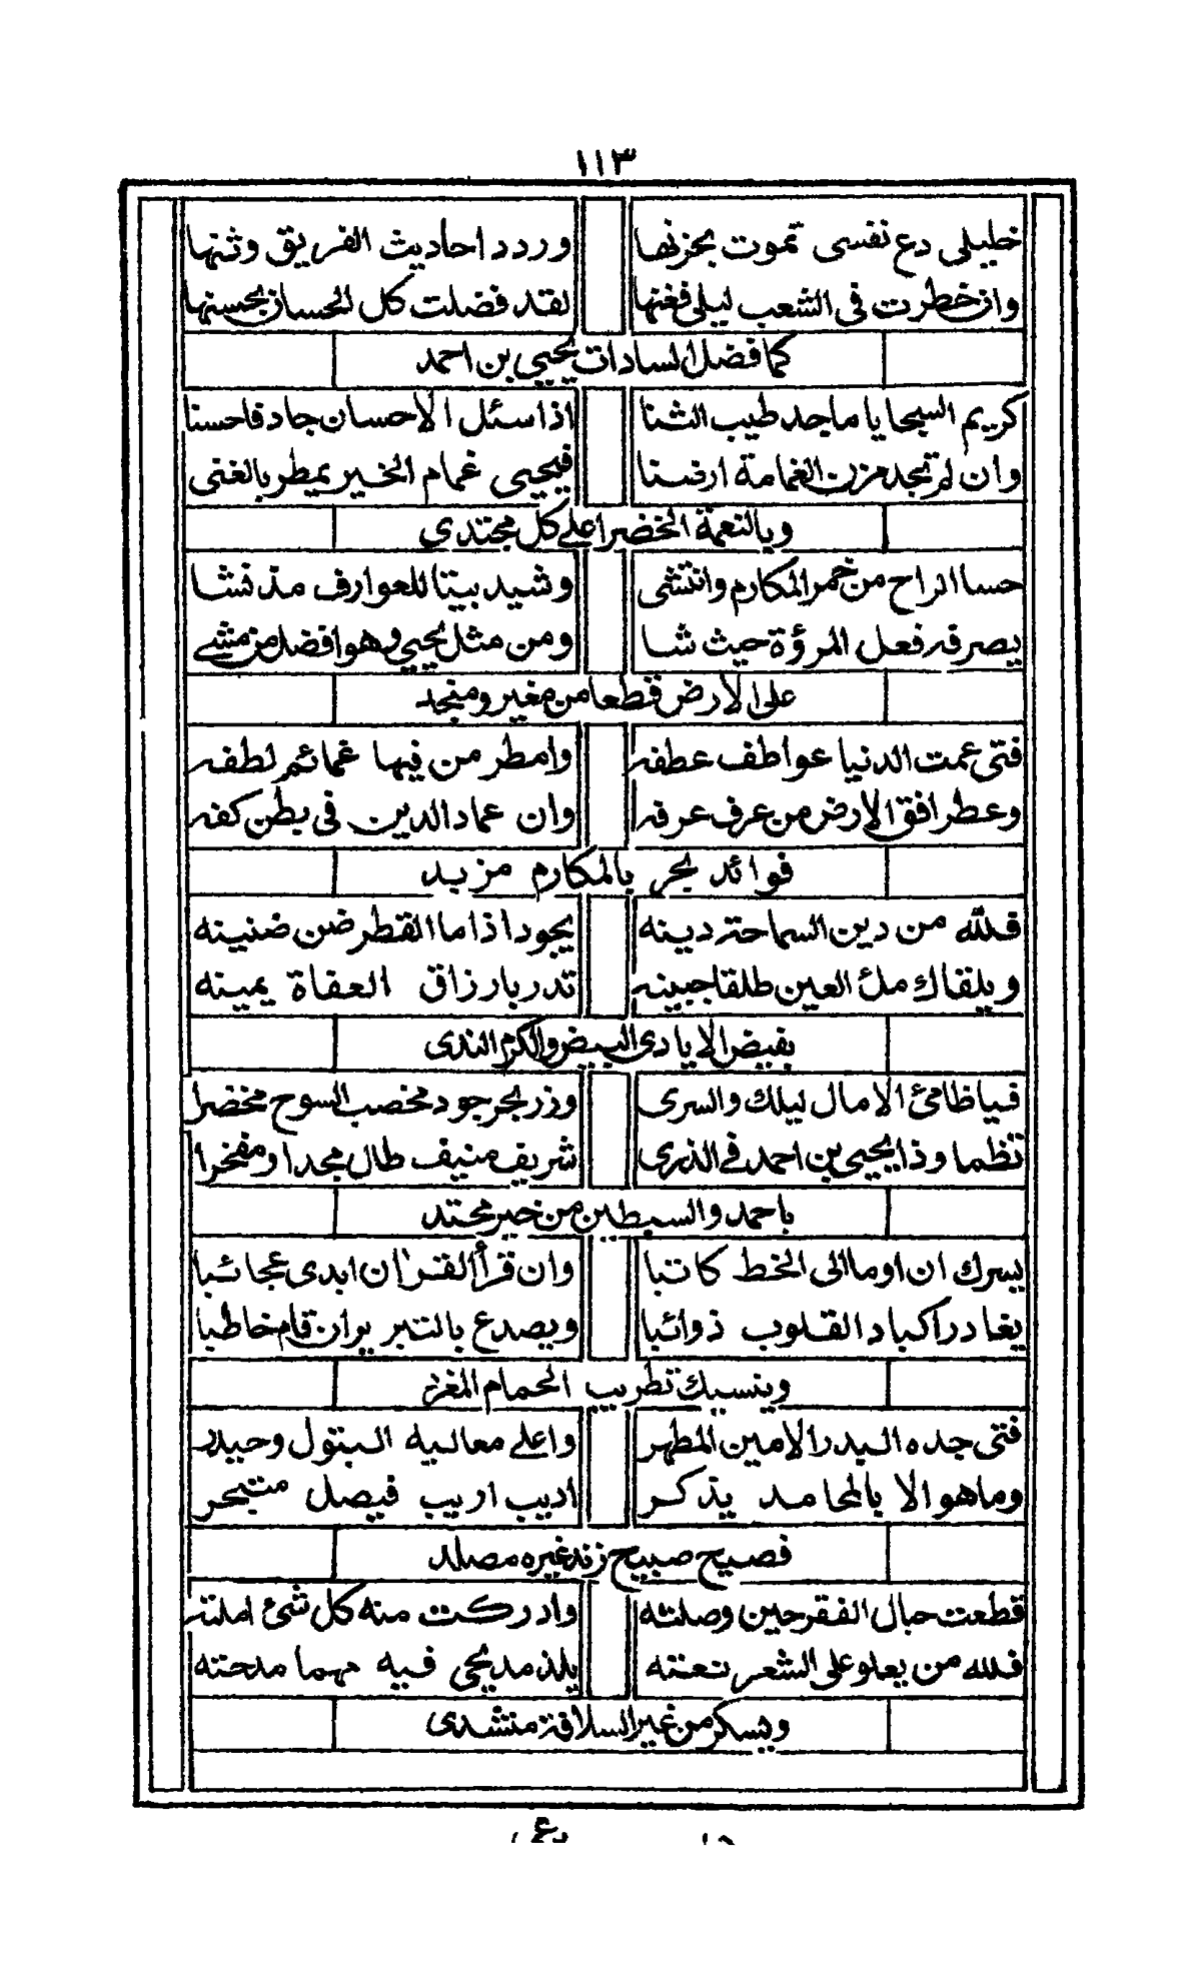 ١١٣
خليلى دع نفسى تموت بحزنها وردد احاديث الفريق وثنها
وان خطرت فى الشعب ليلى فغنها لقد فضلت كل الحسان بحسنها
كما فضل السادات يحيى بن احمد
كريم السجايا ماجد طيب الثنا اذا سئل الاحسان جاد فاحسنا
وان لم تجد مزن الغمامة ارضنا فيحيى غمام الخير يمطر بالغنى
وبالنعمة الخضرا على كل مجتدى
حسا الراح من خمر المكارم وانتشى وشيد بيتا للعوارف مذ نشا
يصرفه فعل المرؤة حيث شا ومن مثل يحيى وهو افضل من مشى
على الارض قطعا من مغير ومنجد
فتى عمت الدنيا عواطف عطفه وامطر من فيها غمائم لطفه
وعطر افق الارض من عرف عرفه وان عماد الدين فى بطن كفه
فوائد بحر بالمكارم مزبد
فلله من دين السماحة دينه يجود اذا ما القطر ضن ضنينه
ويلقاك ملئ العين طلقا جبينه تدر بارزاق العفاة يمينه
بفيض الايادى البيض والكرم الندى
فيا ظامئ الامال ليلك والسرى وزر بحر جود مخصب السوح مخضرا
تظما وذا يحيى بن احمد فى الذرى شريف منيف طال مجدا ومفخرا
باحمد والسبطين من خير محتد
يسرك ان اوما الى الخط كاتبا وان قرأ القرٰان ابدى عجائبا
يغادر اكباد القلوب ذوائبا ويصدع بالتبر يران قام خاطبا
وينسيك تطريب الحمام المغرد
فتى جده البدر الامين المطهر واعلى معاليه البتول وحيدر
وما هو الا بالمحامد يذكر اديب اريب فيصل متبحر
فصيح صبيح زند غيره مصلد
قطعت حبال الفقر حين وصلته وادركت منه كل شئ املته
فلله من يعلو على الشعر نعته يلذ مديحى فيه مهما مدحته
ويسكر من غير السلافة منشدى